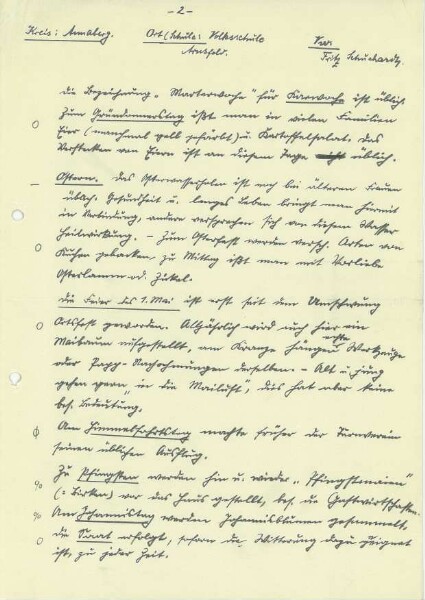 - 2 -
Kreis: Annaberg. Ort (Schule: Volksschule Ver:
Arnsfeld. Fritz Schuhardt.
die Bezeichnung „Marterwoche“ für Karwoche ist üblich.
Zum Gründonnerstag ißt man in vielen Familien
Eier (manchmal gelb gefärbt) u. Kartoffelsalat. Das
Verstecken von Eiern ist an diesem Tage üblich.
Ostern. Das Osterwasserholen ist noch bei älteren Frauen
üblich. Gesundheit u. langes Leben bringt man hiermit
in Verbindung, andere versprechen sich an diesem Wasser
Heilwirkung. – Zum Osterfest werden versch. Arten von
Kuchen gebacken, zu Mittag ißt man mit Vorliebe
Osterlamm od. Zickel.
Die Feier des 1. Mai ist erst seit dem Umschwung
Ortsfest geworden. Alljährlich wird auch hier ein
Maibaum aufgestellt, am Kranze hängen echte Werkzeuge
oder Papp-Nachahmungen derselben. – Alt u. jung
gehen gern „in die Mailuft“, dies hat aber keine
bes. Bedeutung.
Am Himmelfahrtstag machte früher der Turnverein
seinen üblichen Ausflug.
Zu Pfingsten werden hin u. wieder „Pfingstmaien“
(= Birken) vor das Haus gestellt, bes. die Gastwirtschaften.
Am Johannistag werden Johannisblumen gesammelt.
Die Saat erfolgt, sofern die Witterung dazu geeignet
ist, zu jeder Zeit.